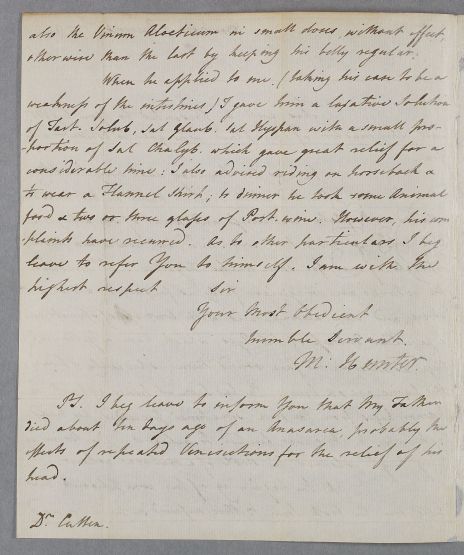 also the Vinum Aloeticum in small doses, without effect,
otherwise than the last by keeping his belly regular.
When he applied to me, (taking his case to be a
weakness of the intestines,) I gave him a laxative Solution
of Tart. Solub, Sal Glaub. Sal Hyspan with a small pro-
-portion of Sal Chalyb. which gave great relief for a
considerable time: I also advised riding on horseback &
to wear a Flannel Shirt; to dinner he took some Animal
food & two or three glass of Port wine. However, his com
plaints have recurred. As to other particulars I beg
leave to refer You to himself. I am with the
highest respect Sir
Your Most Obedient
Humble Servant.
M: Hunter.
PS. I beg leave to inform You that My Father
died about ten days ago of an Anasarca, probably the
effects of repeated Venesections for the relief of his
head.
Dr. Cullen.